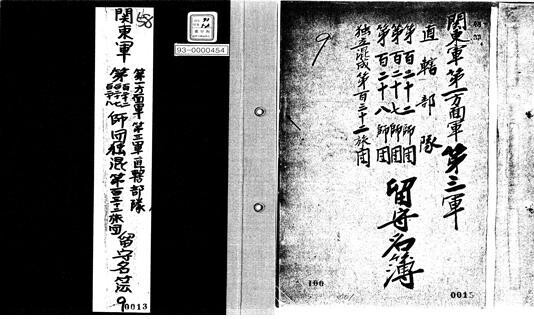 58
関東軍
第一方面軍 第三軍直轄部隊
第百二十二
百二十七
百二十八
師団独混第百三十二旅団
留守名簿
9
0013
93-0000454
関東軍第一方面軍第三軍
直轄部隊
第百二十二師団
第百二十七師団
第百二十八師団
独立混成第百三十二旅団
留守名簿
9
100
0015